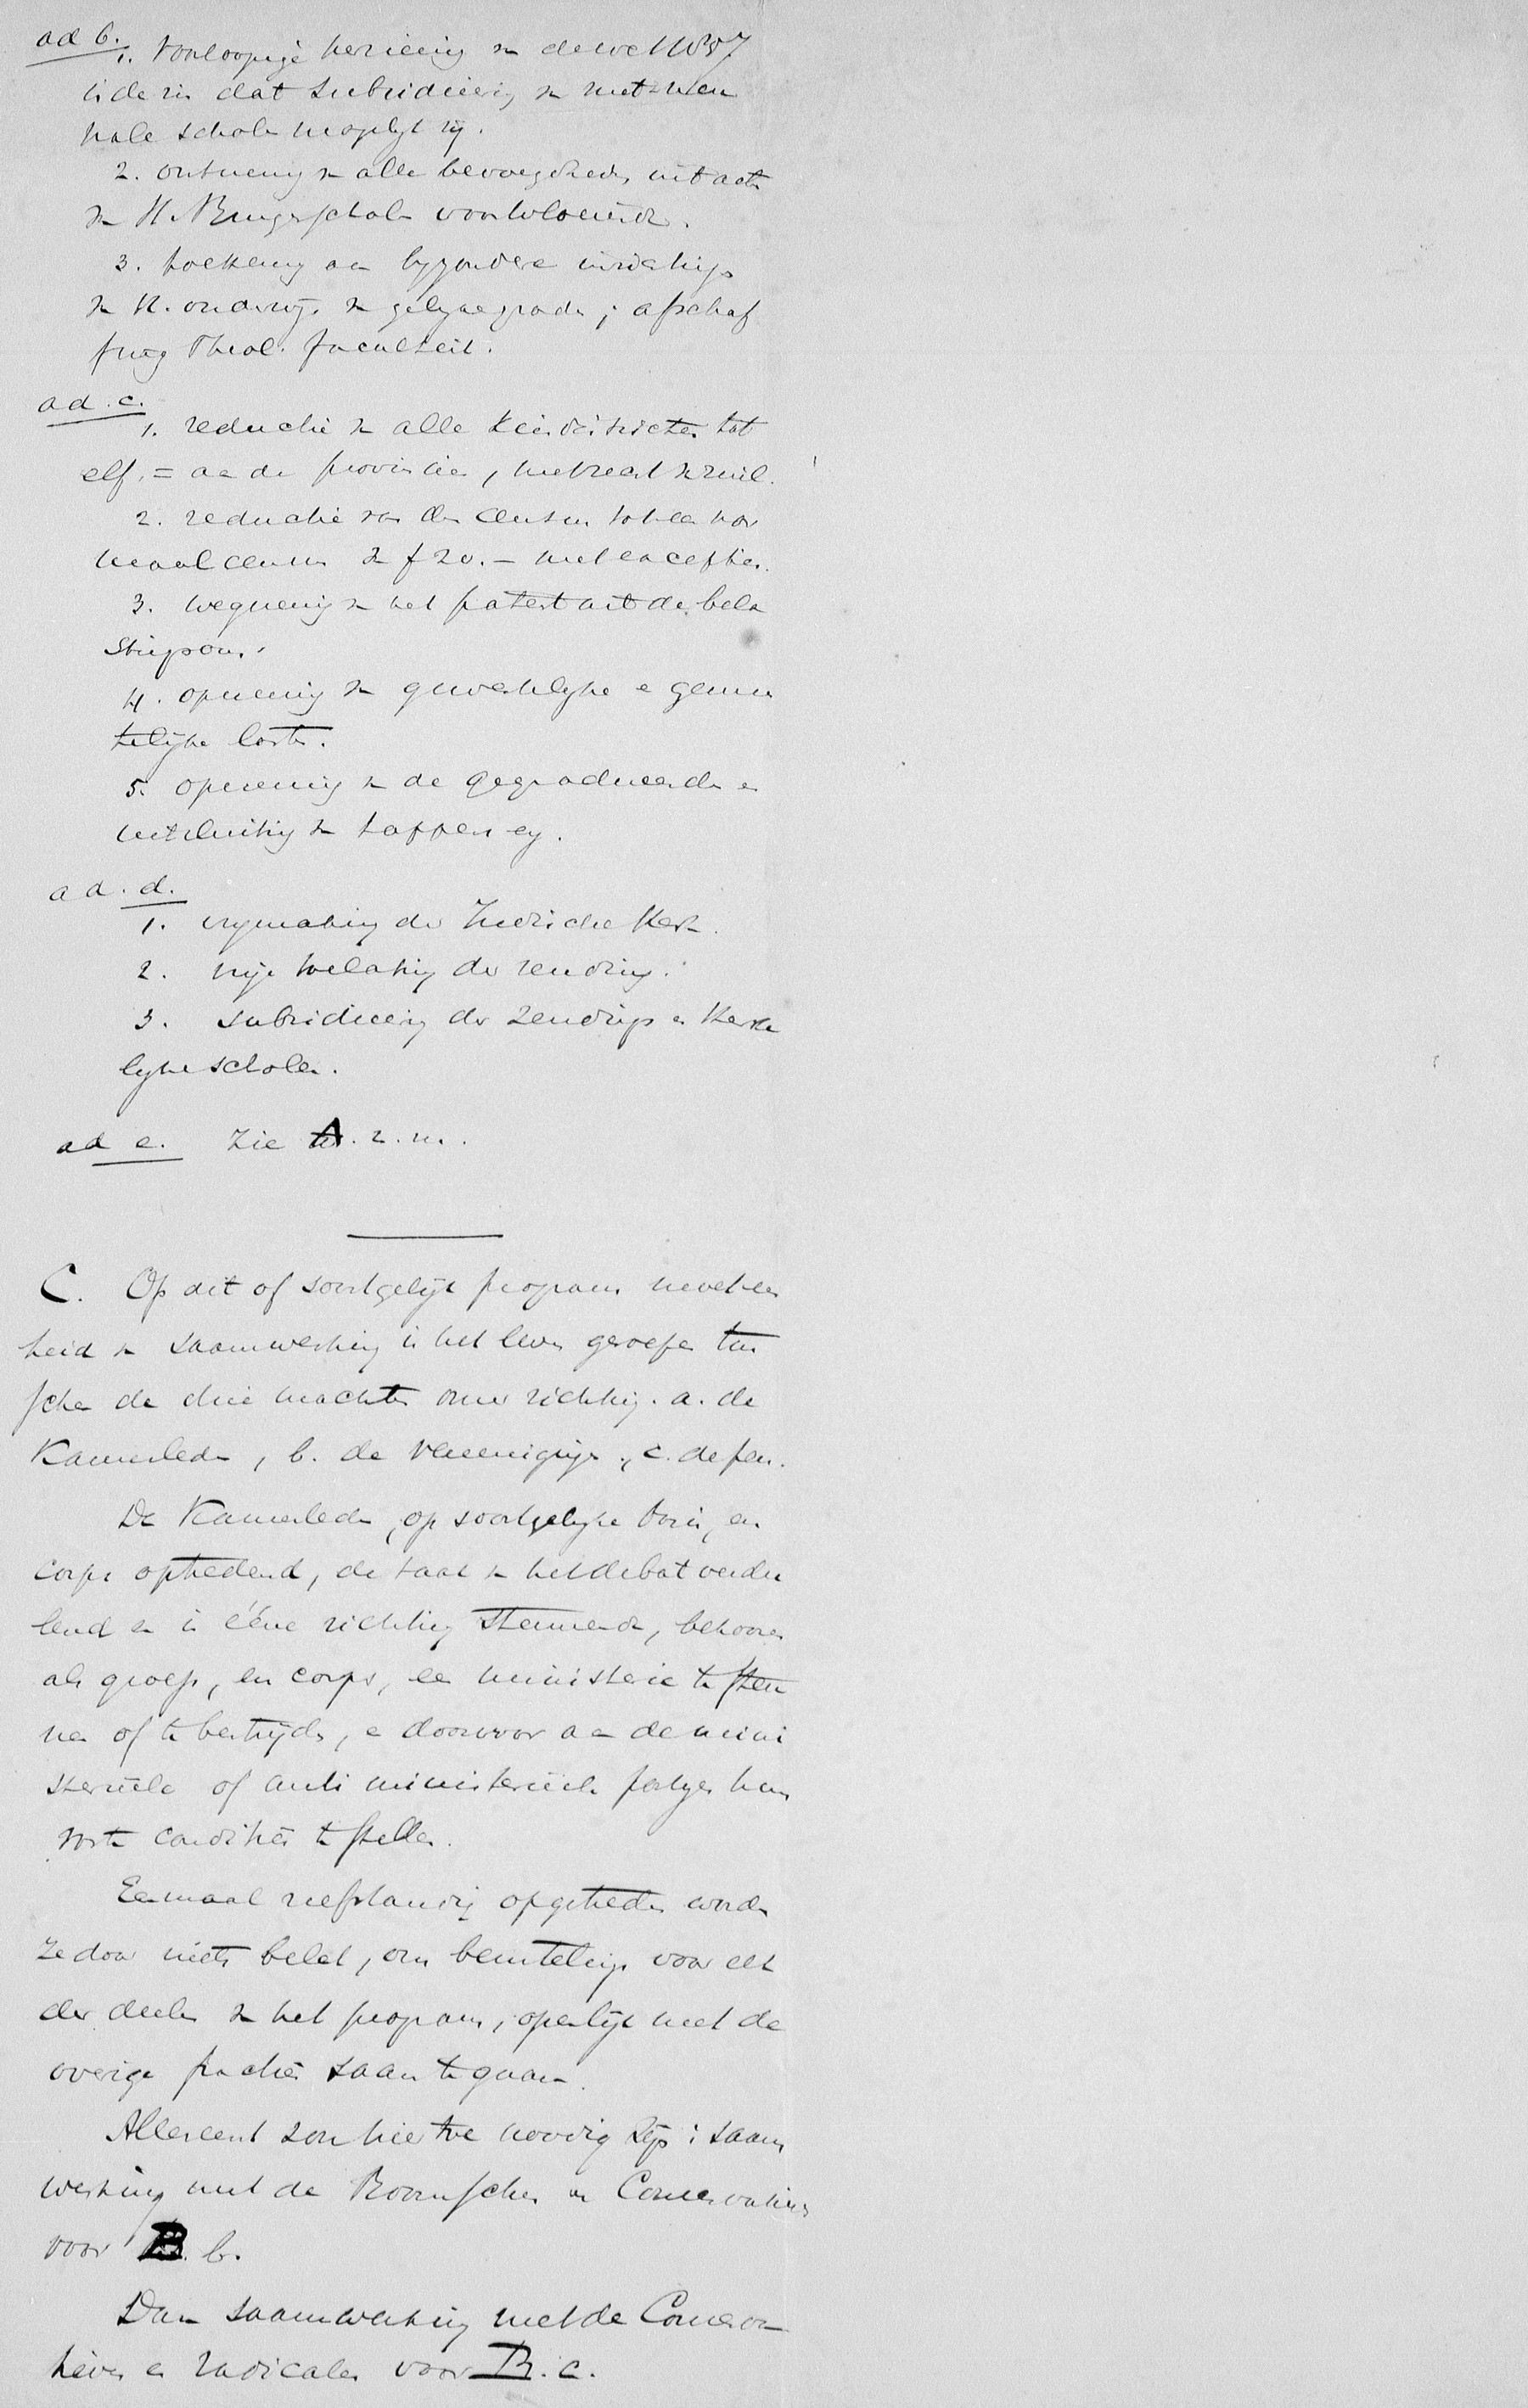 ad b.
1. Voorloopige herziening v de wet 1857
in de zin dat subsidieering v niet-neu
trale scholen mogelijk zij.
2. ontneming v alle bevoegdheden uit acte
v H. Burgerscholen voortvloeiende.
3. toekenning aan byzondere inrichtings
v H. onderwijs v gelyke graden; afschaf
fing Theol. faculteit.
ad. c.
1. reductie v alle Kiesdistricten tot
elf, = aan de provincies, met recht v ruil.
2. reductie van den census tot een nor
maal census v f 20.– met exceptien.
3. wegneming v het patent uit de bela
stingsom.
4. opneming v gewestelyke e gemee
telijke lasten.
5. opneming v de gegradueerden en
uitsluiting v tappers eg.
ad. d.
1. vrymaking der Indische Kerk.
2. vrije toelating der zending.
3. subsidieering der Zendings e Kerke
lyke scholen.
ad e. Zie A. 2. n.
C. Op dit of soortgelijk program
heid v saamwerking in het leven geroepen tus
schen de drie machten onzer richting. a. de
Kamerleden, b. de Vereenigings, c. de pers.
De Kamerleden, op soortgelyke basis, en
corps optredend, de taak v het debat verdee
lend en in ééne richting stemmende, behooren
als groep, en corps, een ministerie te steu
nen of te bestrijden, e daarvoor aan de mini
sterieele of anti ministerieele partyen hun
vaste conditiën te stellen.
Eenmaal zelfstandig opgetreden worden
ze door niets belet, om beurtelings voor elk
der deelen v het program, openlijk met de
overige fractiën saam te gaan.
Allereerst zou hiertoe noodig zijn: saam
werking met de Roomschen en Conservatieven
voor B. b.
Dan saamwerking met de Conserva
tieven e radicalen voor B. c.